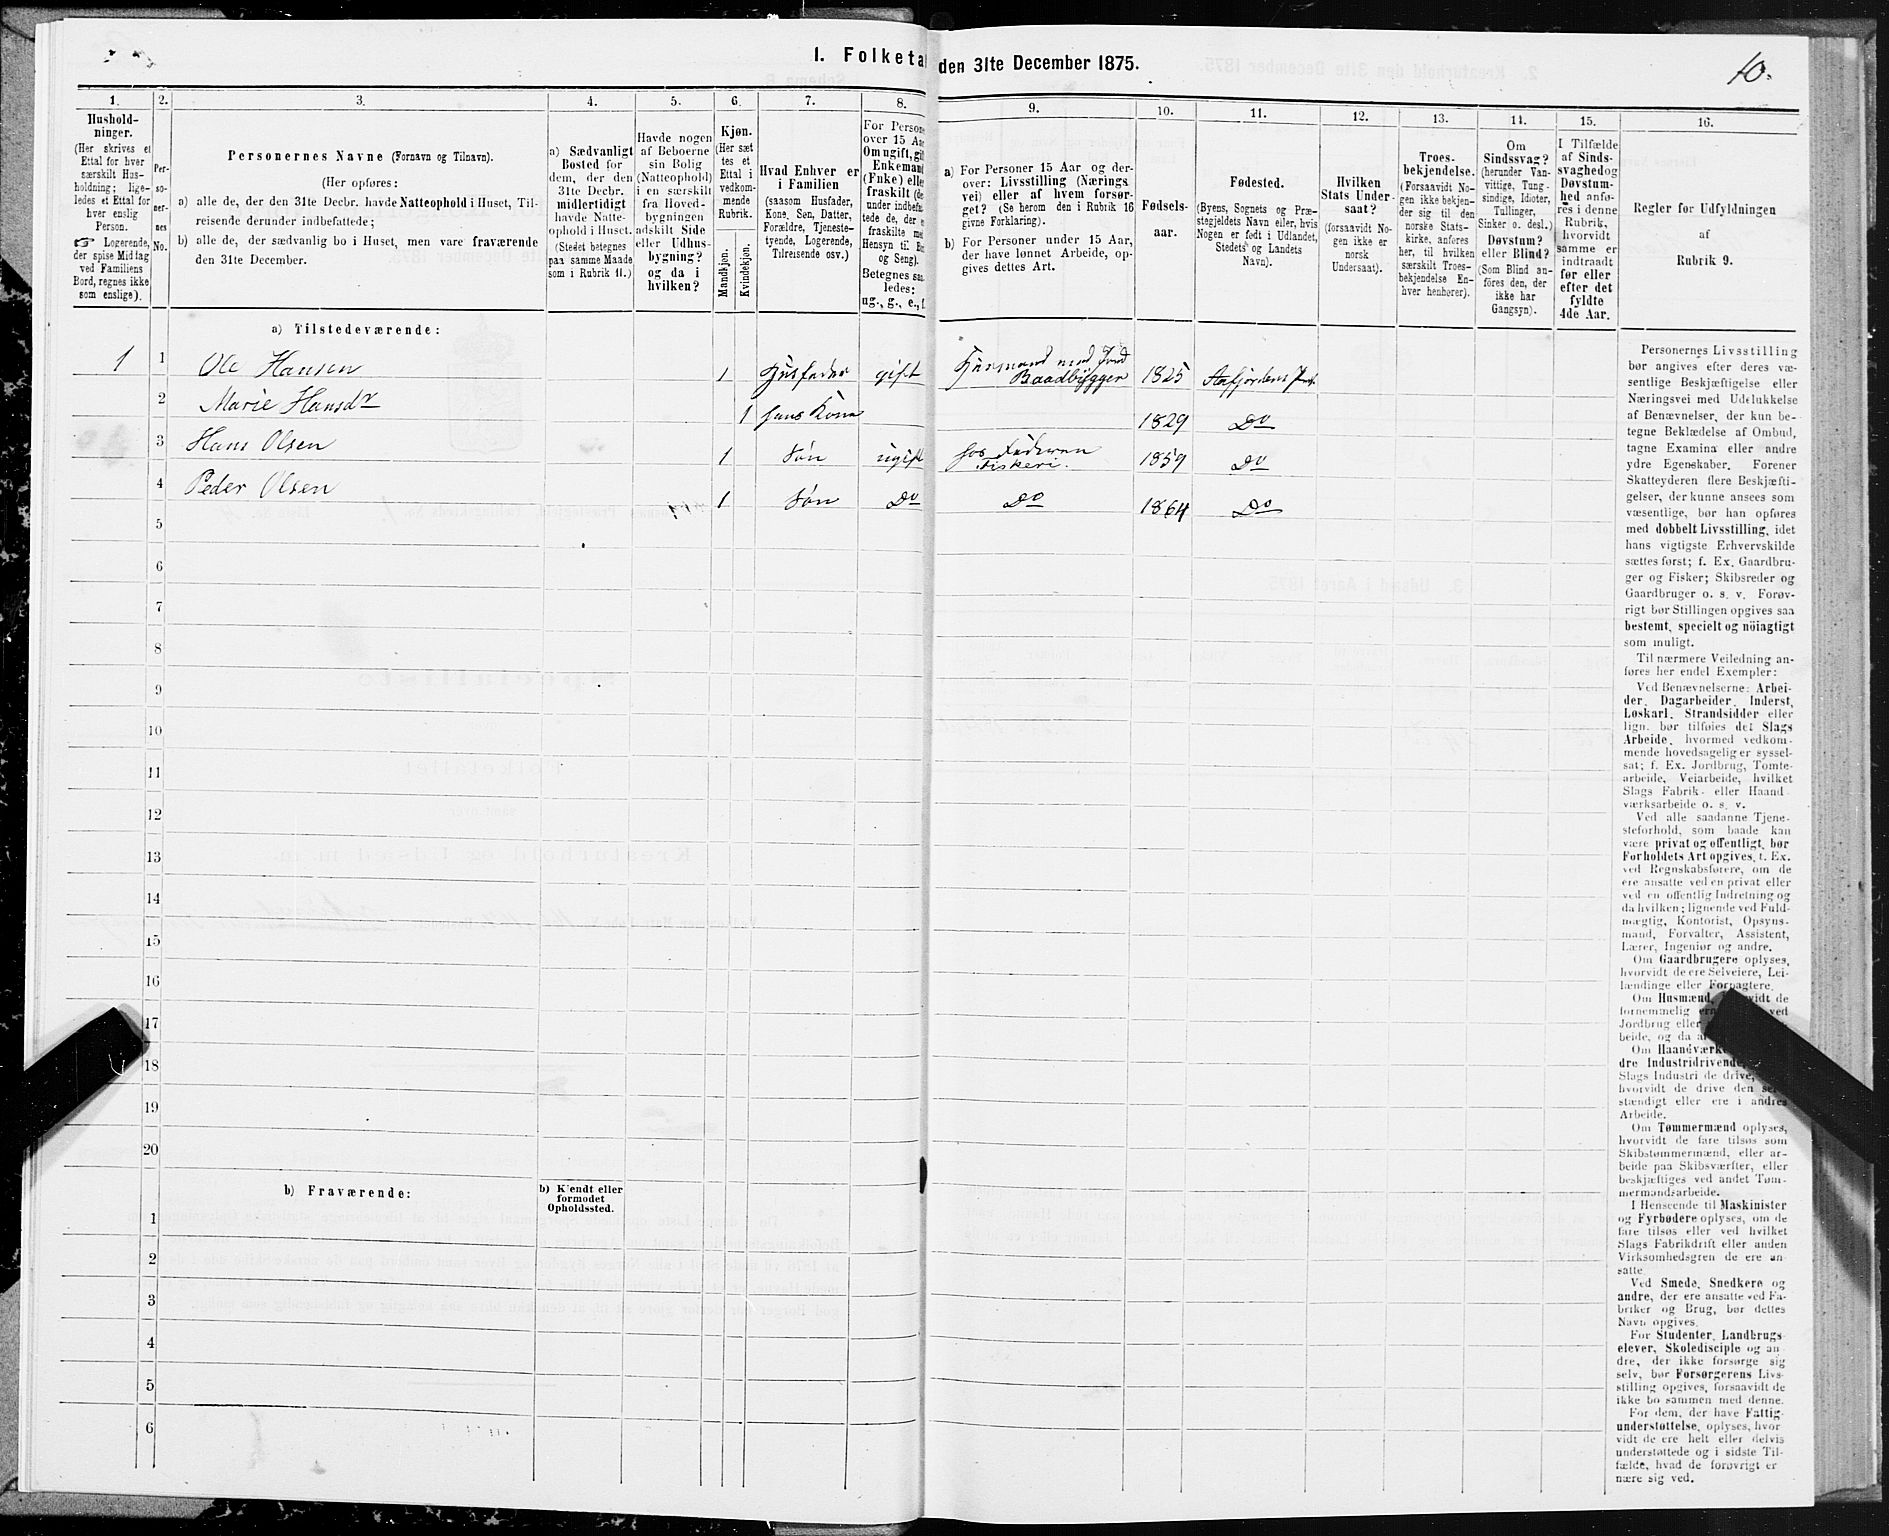 I. Folketal den 31te December 1875.
10.
1.
Hushold-
ninger.
(Her skrives et
Ettal for hver
særskilt Hus-
holdning; lige-
ledes et Ettal for
hver enslig
Person.
☞ Logerende,
der spise Middag
ved Familiens
Bord, regnes ikke
som enslige).
2.
Per-
so-
ner-
nes
No.
3.
Personernes Navne (Fornavn og Tilnavn).
(Her opføres:
a) alle de, der den 31te Decbr. havde Natteophold i Huset, Til-
reisende derunder indbefattede;
b) alle de, der sædvanlig bo i Huset, men vare fraværende
den 31te December.
4.
a) Sædvanligt
Bosted for
dem, der den
31te Decbr.
midlertidigt
havde Natte-
ophold i Huset.
(Stedet betegnes
paa samme Maade
som i Rubrik 11.)
5.
Havde nogen
af Beboerne
sin Bolig
(Natteophold)
i en særskilt
fra Hoved-
bygningen
adskilt Side
eller Udhus-
bygning?
og da i
hvilken?
6.
Kjøn.
(Her sæt
tes et
Ettal i
vedkom-
mende
Rubrik.
Mandkjøn.
Kvindekjøn.
7.
Hvad Enhver er
i Familien
(saasom Husfader,
Kone, Søn, Datter,
Forældre, Tjeneste-
tyende, Logerende,
Tilreisende osv.)
8.
For Persone
over 15 Aar
Om ugift, gif
Enkemand
(Enke) elle
fraskilt (de
under indbefat
tede de, der e
fraskilte me
Hensyn til Bo
og Seng).
Betegnes saa
ledes:
ug., g., e., f
9.
a) For Personer 15 Aar og der-
over: Livsstilling (Nærings
vei) eller af hvem forsør-
get? (Se herom den i Rubrik 16
givne Forklaring).
b) For Personer under 15 Aar,
der have lønnet Arbeide, op-
gives dettes Art.
10.
Fødsels-
aar.
11.
Fødested.
(Byens, Sognets og Præ-
stegjeldets Navn eller, hvis
Nogen er født i Udlandet,
Stedets og Landets
Navn).
12.
Hvilken
Stats Under-
saat?
(forsaavidt No-
gen ikke er
norsk
Undersaat).
13.
Troes-
bekjendelse.
(Forsaavidt No-
gen ikke bekjen-
der sig til den
norske Stats-
kirke, anføres
her, til hvilken
særskilt Troes-
bekjendelse En-
hver henhører).
14.
Om
Sindssvag?
(herunder Van-
vittige, Tung-
sindige, Idioter,
Tullinger,
Sinker o. desl.)
Døvstum?
eller Blind?
(Som Blind an-
føres den, der
ikke har
Gangsyn).
15.
I Tilfælde
af Sinds-
svaghed og
Døvstum-
hed anfø-
res i denne
Rubrik,
hvorvidt
samme er
indtraadt
før eller
efter det
fyldte
4de Aar.
16.
Regler for Udfyldningen
af
Rubrik 9.
a) Tilstedeværende:
1 1 Ole Hansen 1 Husfader gift Husmand med Jord Baadbygger 1825 Aafjordens Præst.
2 Marie Hansdr 1 hans Kone 1829 Do
3 Hans Olsen 1 Søn ugift hos Faderen Fiskeri. 1859 Do
4 Peder Olsen 1 Søn Do Do 1864 Do
5
6
7
8
9
10
11
12
13
14
15
16
17
18
19
20
b) Fraværende:
b) Kjendt eller
formodet
Opholdssted.
1
2
3
4
5
6
Personernes Livsstilling
bør angives efter deres væ-
sentlige Beskjæftigelse eller
Næringsvei med Udelukkelse
af Benævnelser, der kun be-
tegne Beklædelse af Ombud,
tagne Examina eller andre
ydre Egenskaber. Forener
Skatteyderen flere Beskjæfti-
gelser, der kunne ansees som
væsentlige, bør han opføres
med dobbelt Livsstilling, idet
hans vigtigste Erhvervskilde
sættes først; f. Ex. Gaardbru-
ger og Fisker; Skibsreder og
Gaardbruger o. s. v. Forøv-
rigt bør Stillingen opgives saa
bestemt, specielt og nöiagtigt
som muligt.
Til nærmere Veiledning an-
føres her endel Exempler:
Ved Benævnelserne: Arbei-
der, Dagarbeider, Inderst,
Løskarl, Strandsidder eller
lign. bør tilføies det Slags
Arbeide, hvormed vedkom-
mende hovedsagelig er syssel-
sat; f. Ex. Jordbrug, Tomte-
arbeide, Veiarbeide, hvilket
Slags Fabrik- eller Haand-
værksarbeide o. s. v.
Ved alle saadanne Tjene-
steforhold, som baade kan
være privat og offentligt, bør
Forholdets Art opgives, f. Ex.
ved Regnskabsførere, om de
ere ansatte ved en privat eller
ved en offentlig Indretning og
da hvilken; lignende ved Fuld-
mægtig, Kontorist, Opsyns-
mand, Forvalter, Assistent,
Lærer, Ingeniør og andre.
Om Gaardbrugere oplyses,
hvorvidt de ere Selveiere, Lei-
lændinge eller Forpagtere.
Om Husmænd, vidt de
fornemmelig er ved
Jordbrug eller
beide, og da
Om Haandværke
dre Industridrivende,
Slags Industri de drive,
hvorvidt de drive den sel
stændigt eller ere i andres
Arbeide.
Om Tømmermænd oplyses,
hvorvidt de fare tilsøs som
Skibstømmermænd, eller ar-
beide paa Skibsværfter, eller
beskjæftiges ved andet Tøm-
mermandsarbeide.
I Henseende til Maskinister
og Fyrbødere oplyses, om de
fare tilsøs eller ved hvilket
Slags Fabrikdrift eller anden
Virksomhedsgren de ere an-
satte.
Ved Smede, Snedkere og
andre, der ere ansatte ved Fa-
briker og Brug, bør dettes
Navn opgives.
For Studenter, Landbrugs-
elever, Skoledisciple og an-
dre, der ikke forsørge sig
selv, bør Forsørgerens Livs-
stilling opgives, forsaavidt de
ikke bo sammen med denne.
For dem, der have Fattig-
understøttelse, oplyses, hvor-
vidt de ere helt eller delvis
understøttede og i sidste Til-
fælde, hvad de forøvrigt er
nære sig ved.